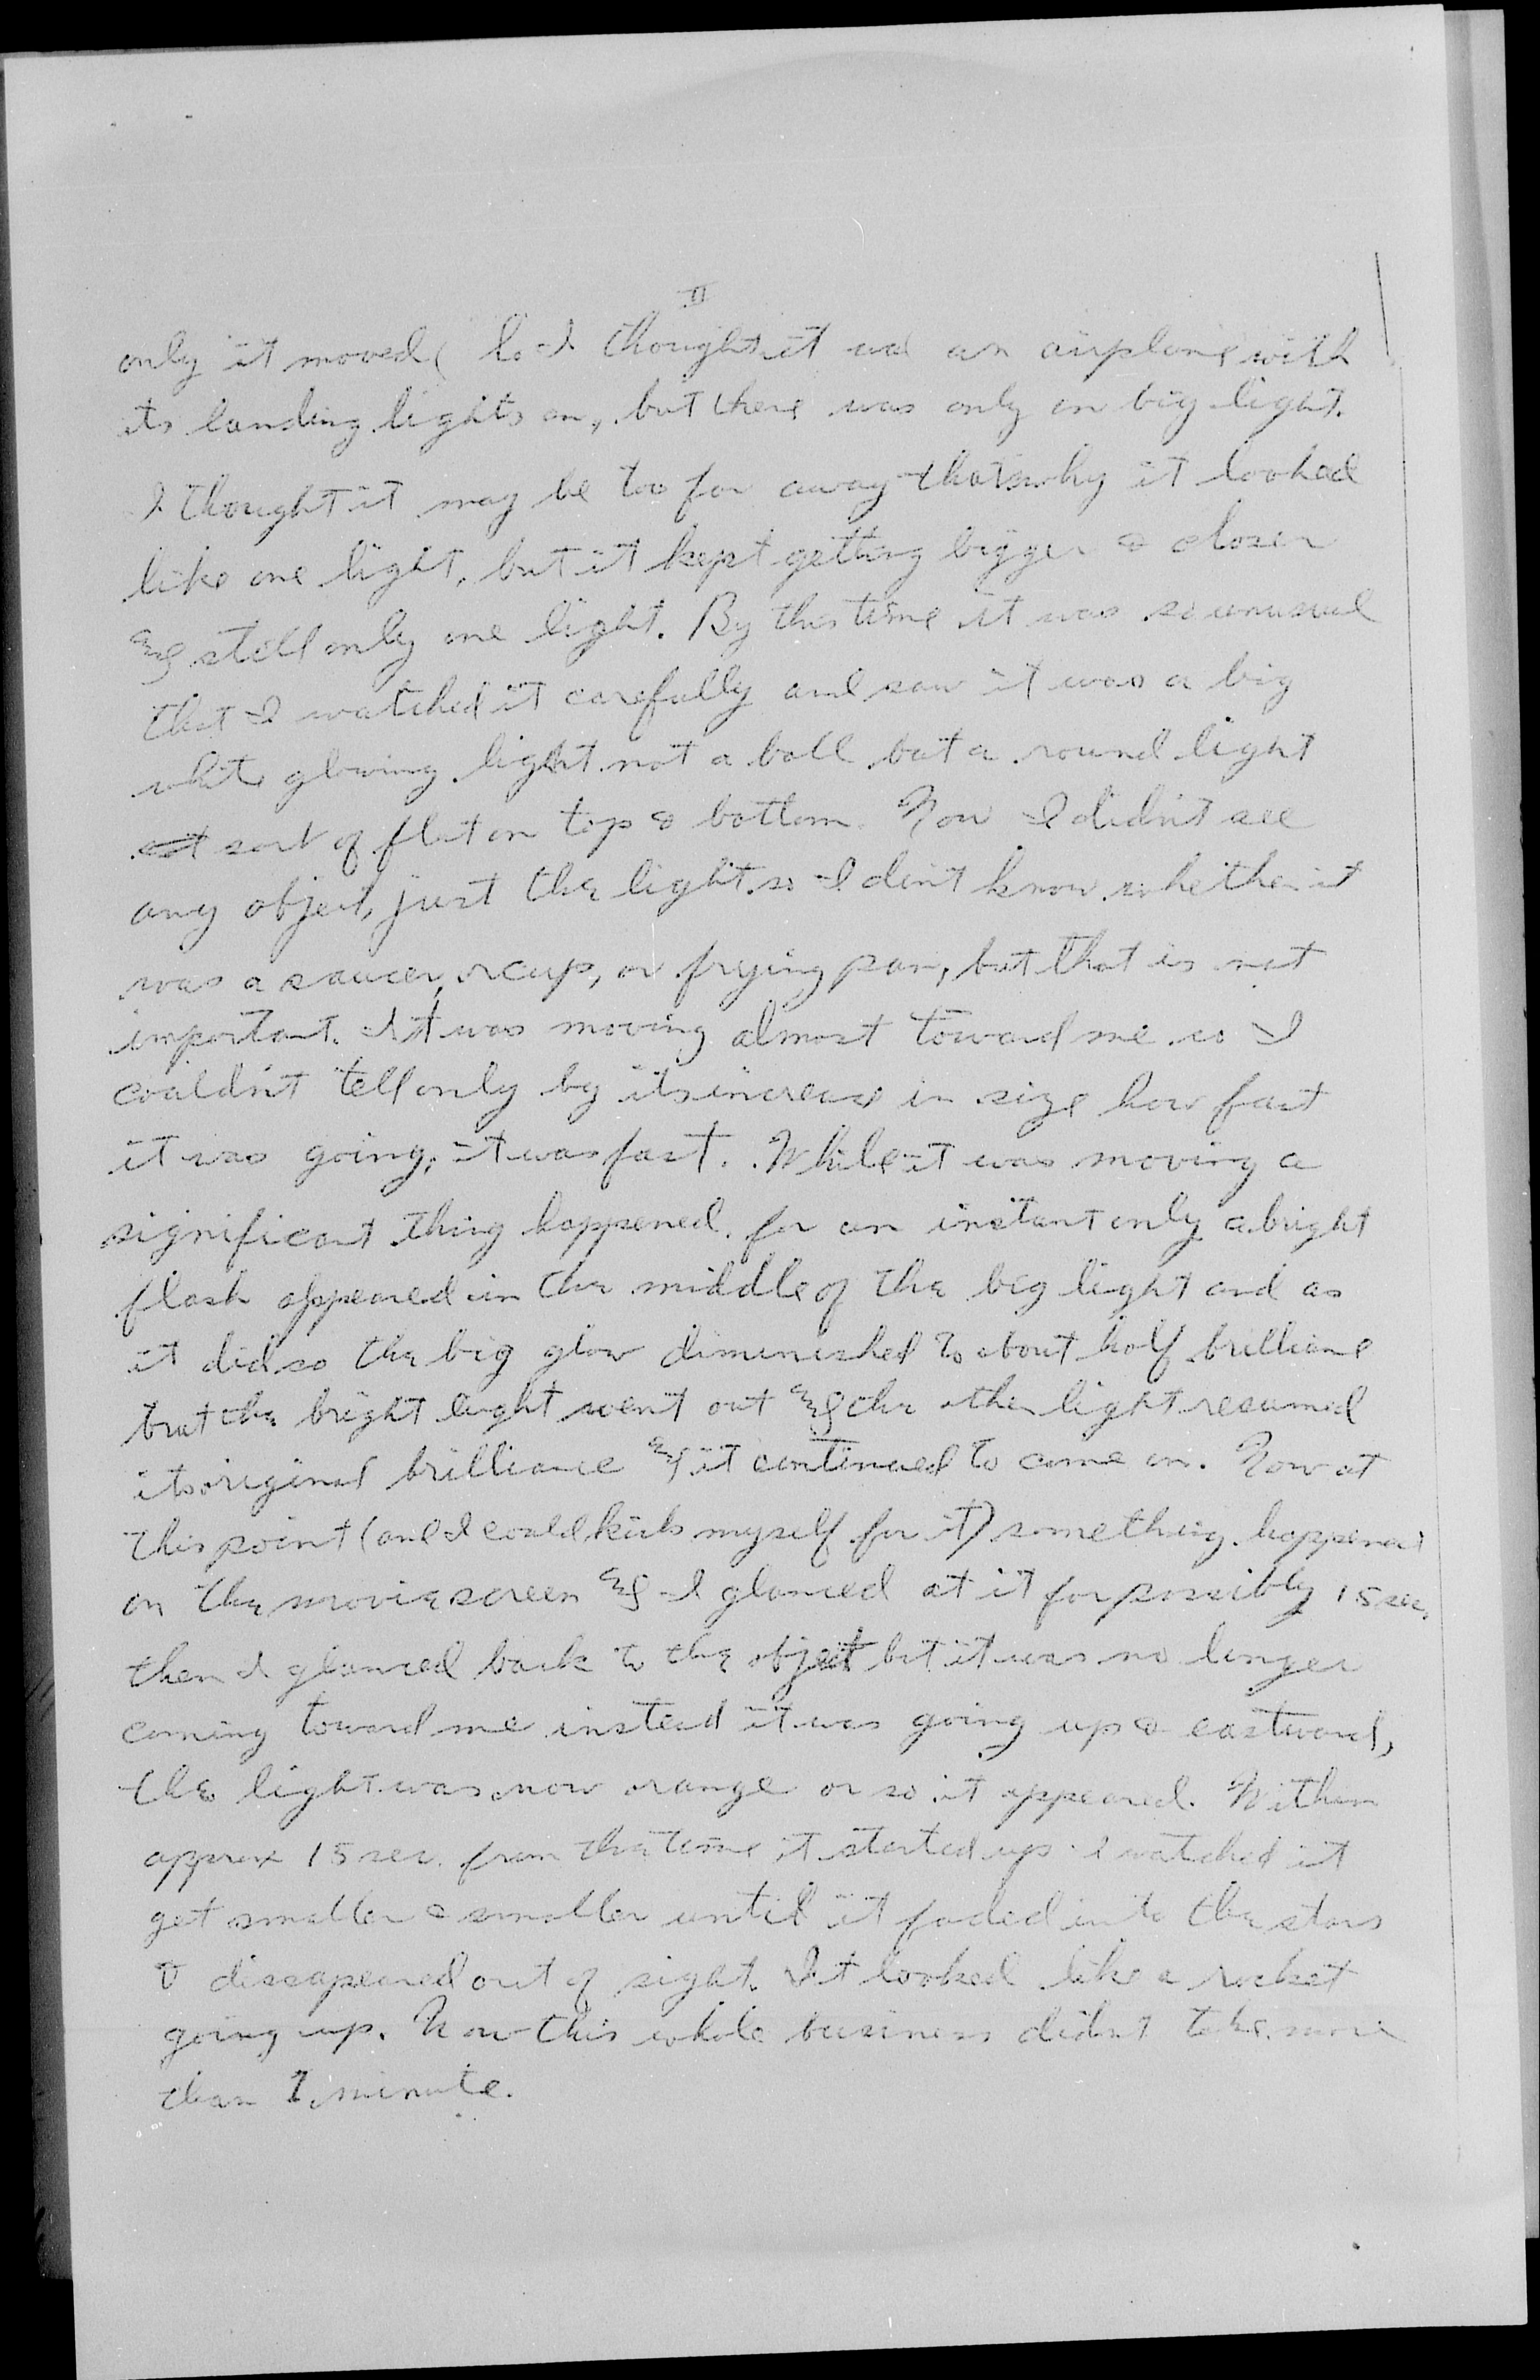 II
only it moved, So I thought it was an airplane with
its landing lights on, but there was only on big light.
I thought it may be too far away thats why it looked
like one light, but it kept getting bigger & closer
& still only one light. By this time it was so unusual
that I watched it carefully and saw it was a big
white glowing light not a ball but a round light
sort of flat on top & bottom. Now I didn't see
any object, just the light so I don't know whether it
was a saucer, or cup, or frying pan, but that is not
important. It was moving almost toward me so I
couldn't tell only by its increase in size how fast
it was going, it was fast. While it was moving a
significant thing happened. for an instant only a bright
flash appeared in the middle of the big light and as
it did so the big glow dimineshed to about half brilliance
but the bright light went out & the other light resumed
its original brilliance & it continued to come on. Now at
this point (and I could kick myself for it) something happened
on the movie screen & I glanced at it for possibly 15 sec.
then I glanced back to the object but it was no longer
coming toward me instead it was going up & eastward,
the light was now orange or so it appeared. Within
approx 15 sec. from the time it started up I watched it
get smaller & smaller until it faded into the stars
& dissapeared out of sight. It looked like a rocket
going up. Now this whole business didn't take more
than 1 minute.